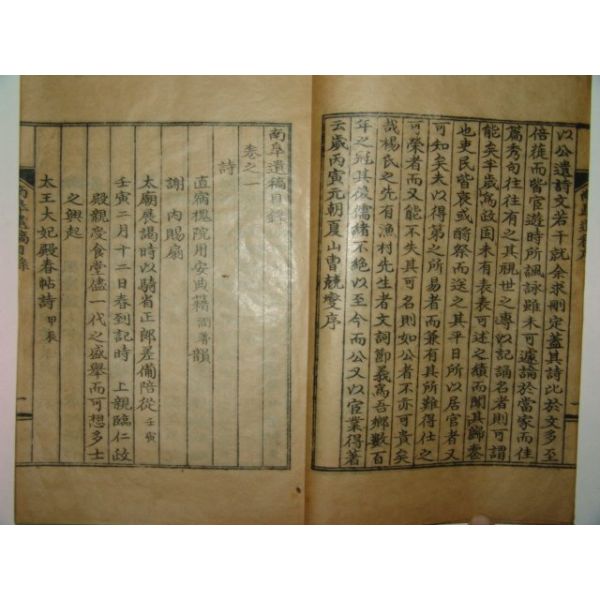 以公遺詩文若干就余求刪定蓋其詩比於文多至
倍蓰而皆宦遊時所諷詠雖未可遽論於當家而佳
篇秀句往往有之其視世之專以記誦名者則可謂
能矣半歲爲政固未有表表可述之績而聞其歸
也吏民皆哀或酹祭而送之其平日所以居官者又
可知矣夫以得第之所易者而兼有其所難得仕之
可榮者而又能不失其可名則如公者不亦可貴矣
哉楊氏之先有漁村先生者文詞節義爲吾鄉數百
年之冠其後儒緖不絶以至今而公又以宦業得著
云歲丙寅元朝夏山曺兢燮序
南阜遺稿目錄
卷之一
詩
直宿槐院用安典籍韻
謝 內賜扇
太廟展謁時以騎省正郎差備陪從 壬寅
壬寅二月十二日春到記時 上親臨仁政
殿親度食堂儘一代之盛擧而可想多士
之興起
太王大妃殿春帖詩 甲辰
南阜遺稿目錄
一